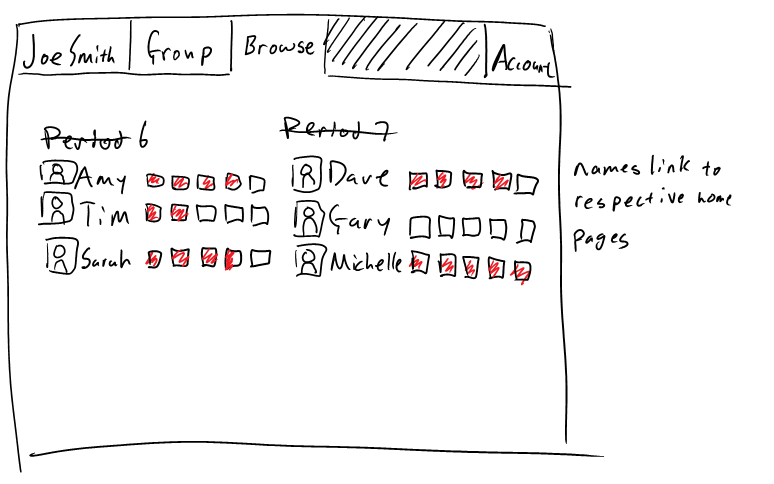 Joe Smith Group Browse Account
Period 6
Amy
Tim
Sarah
Period 7
Dave
Gary
Michelle
names link to
respective home
pages